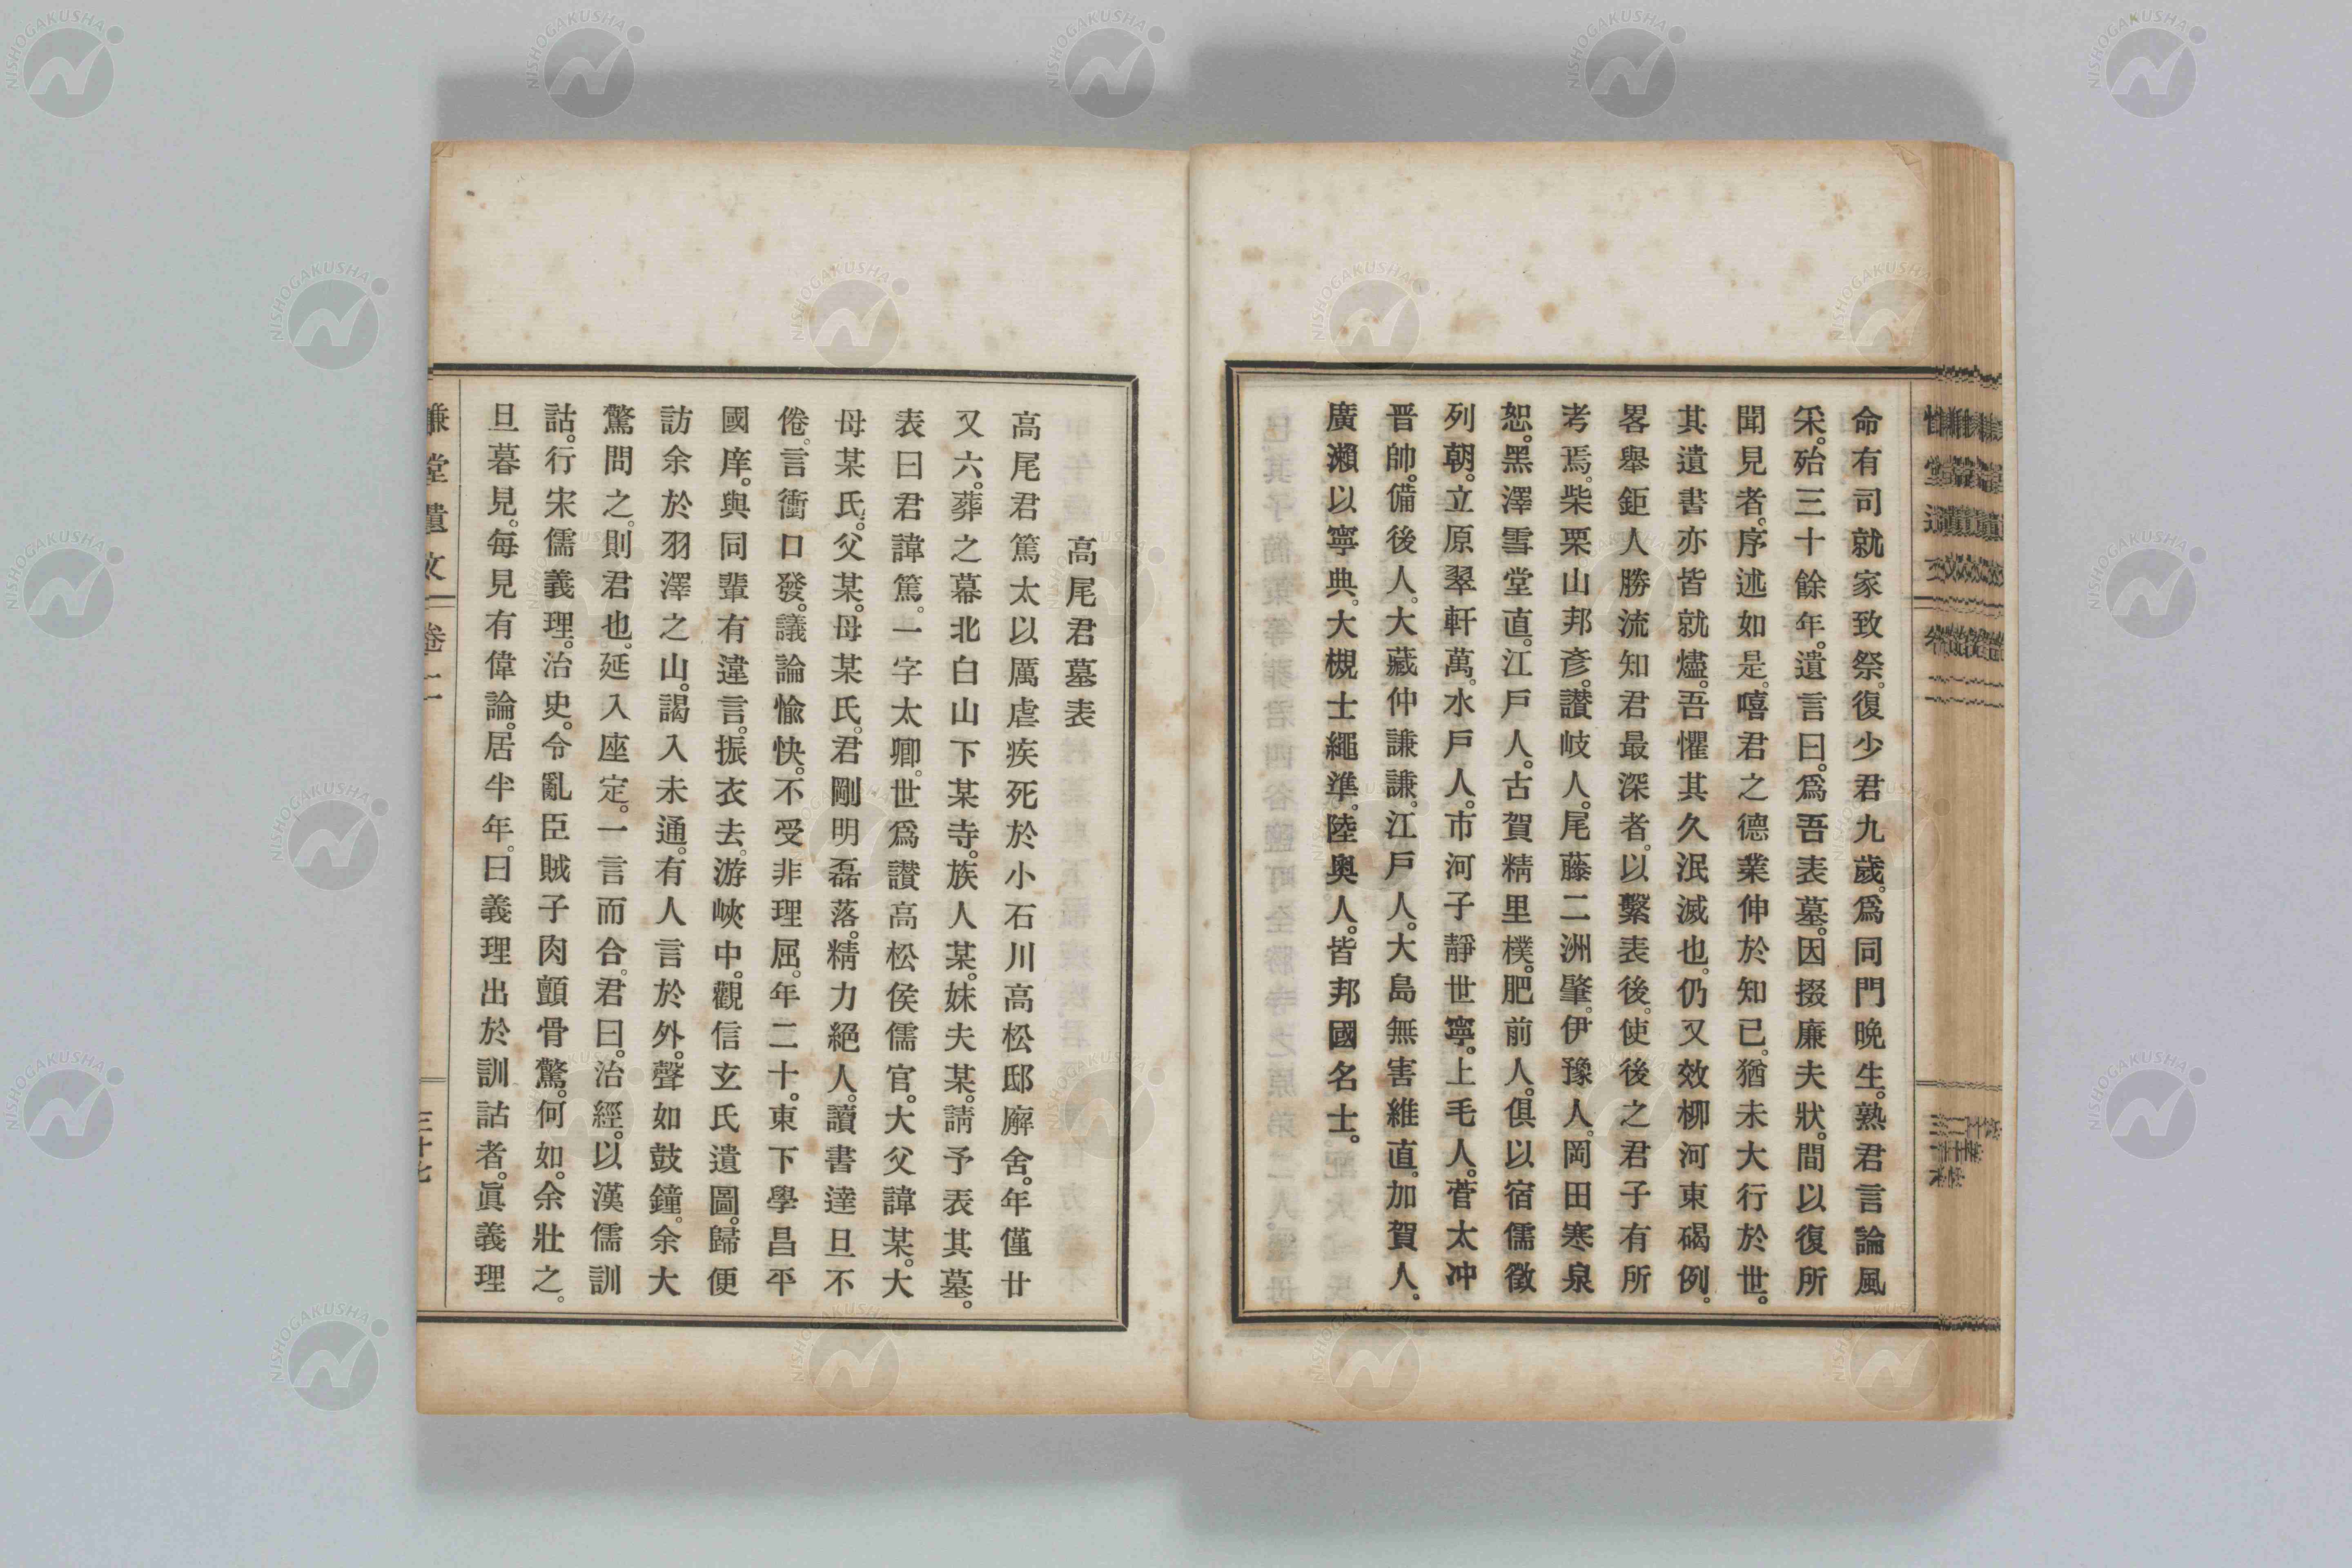 命有司就家致祭。復少君九歲。爲同門晚生。熟君言論風
采。殆三十餘年。遺言曰。爲吾表墓。因掇廉夫狀。間以復所
聞見者。序述如是。嘻君之德業伸於知已。猶未大行於世。
其遺書亦皆就燼。吾懼其久泯滅也。仍又效柳河東碣例。
畧舉鉅人勝流知君最深者。以繫表後。使後之君子有所
考焉。柴栗山邦彥。讚岐人。尾藤二洲肇。伊豫人。岡田寒泉
恕。黑澤雪堂直。江戶人。古賀精里樸。肥前人。俱以宿儒徵
列朝。立原翠軒萬。水戶人。市河子靜世寧。上毛人。菅太冲
晋帥。備後人。大藏仲謙謙。江戶人。大島無害維直。加賀人。
廣瀨以寧典。大槻士繩準。陸奥人。皆邦國名士。
高尾君墓表
高尾君篤太以厲虐疾死於小石川高松邸廨舍。年僅廿
又六。葬之幕北白山下某寺。族人某。妹夫某。請予表其墓。
表曰君諱篤。一字太卿。世爲讚高松侯儒官。大父諱某。大
母某氏。父某。母某氏。君剛明磊落。精力絕人。讀書達旦不
倦。言衝口發。議論愉快。不受非理屈。年二十。東下學昌平
國庠。與同輩有違言。振衣去。游峽中。觀信玄氏遺圖。歸便
訪余於羽澤之山。謁入未通。有人言於外。聲如鼓鐘。余大
驚問之。則君也。延入座定。一言而合。君曰。治經。以漢儒訓
詁。行宋儒義理。治史。令亂臣賊子肉顫骨驚。何如。余壯之。
旦暮見。每見有偉論。居半年。曰義理出於訓詁者。眞義理
慊堂遺文 卷二 三十七
NISHOGAKUSHA